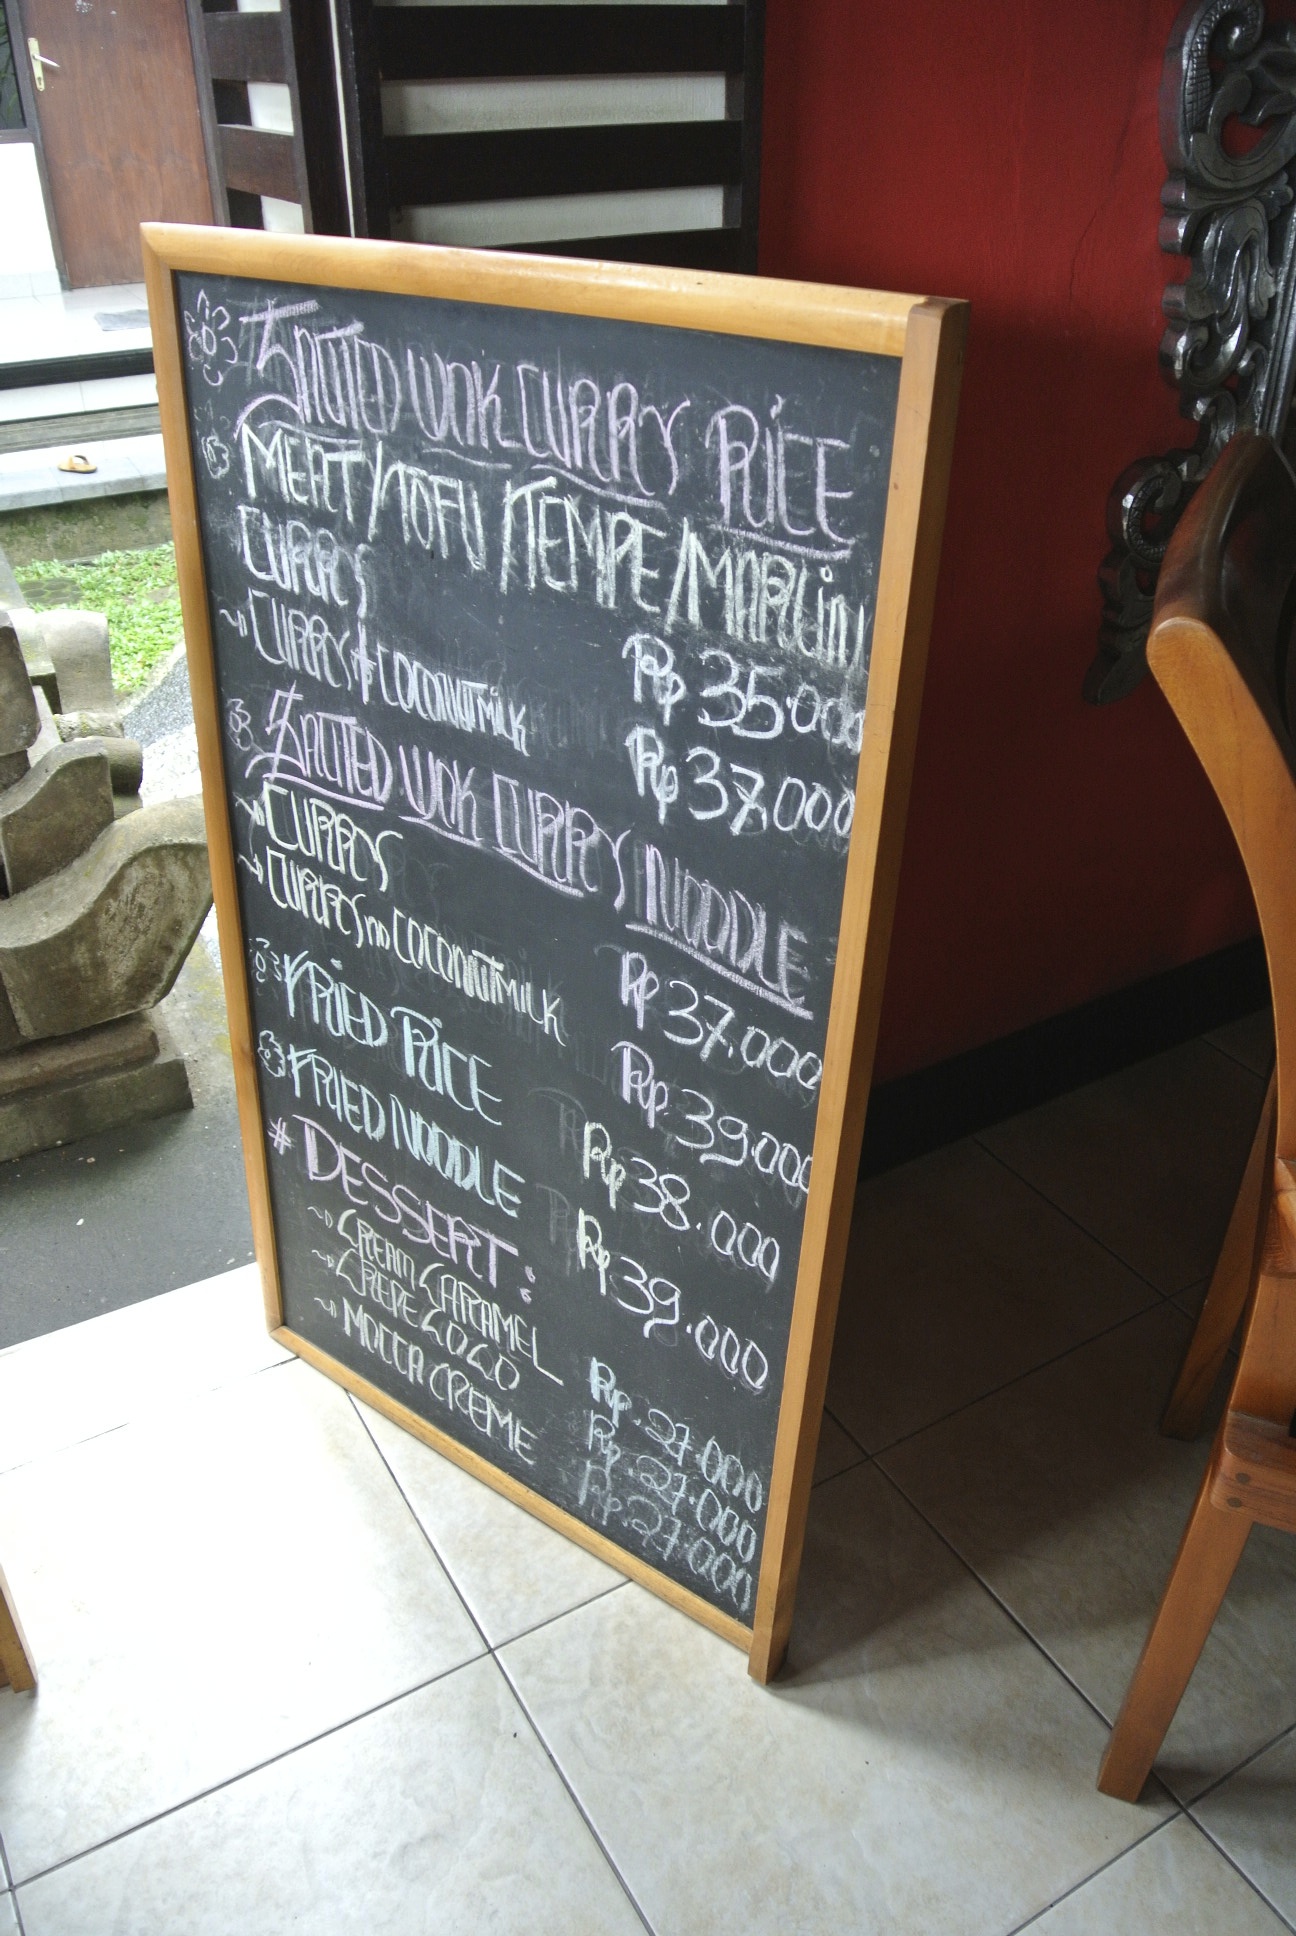 SALTED WOK CURRY RICE
MEAT/TOFU/TEMPE/MARLiN
CURRY Rp 35.000
CURRY + COCONUTMiLK Rp 37.000
SALTED WOK CURRY NOODLE
CURRY Rp 37.000
CURRY no COCONUTMiLK Rp. 39.000
FRiED RiCE Rp 38.000
FRiED NOODLE Rp 39.000
# DESSERT:
CREAM CARAMEL Rp. 27.000
CREPE COCO Rp. 27.000
MOCCA CREME Rp. 27.000